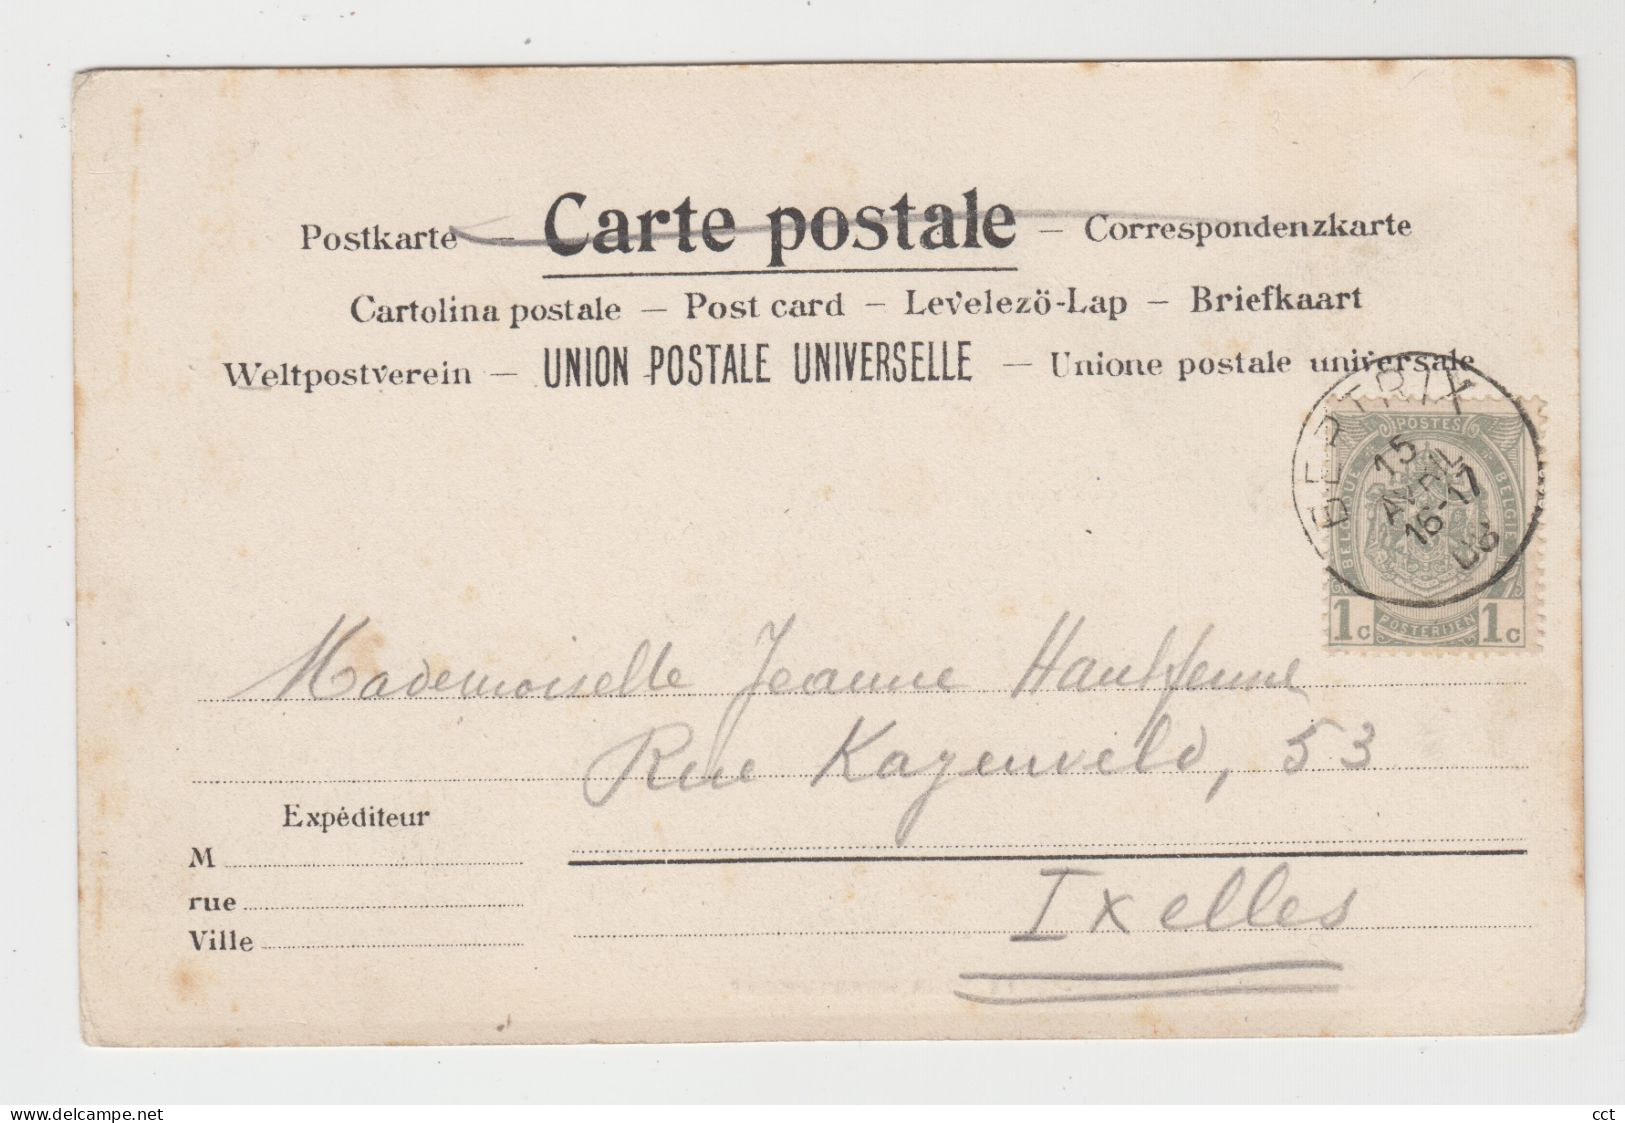 Postkarte – Carte postale – Correspondenzkarte
Cartolina postale – Post card – Levelezö-Lap – Briefkaart
Weltpostverein – UNION POSTALE UNIVERSELLE – Unione postale universale
BERTRIX
15
AVRIL
16-17
08
POSTES
BELGIQUE BELGIË
1c POSTERIJEN 1c
Mademoiselle Jeanne Hautfenne
Rue Kayenveld, 53
Expéditeur
M
rue
Ville
Ixelles
www.delcampe.net
cct